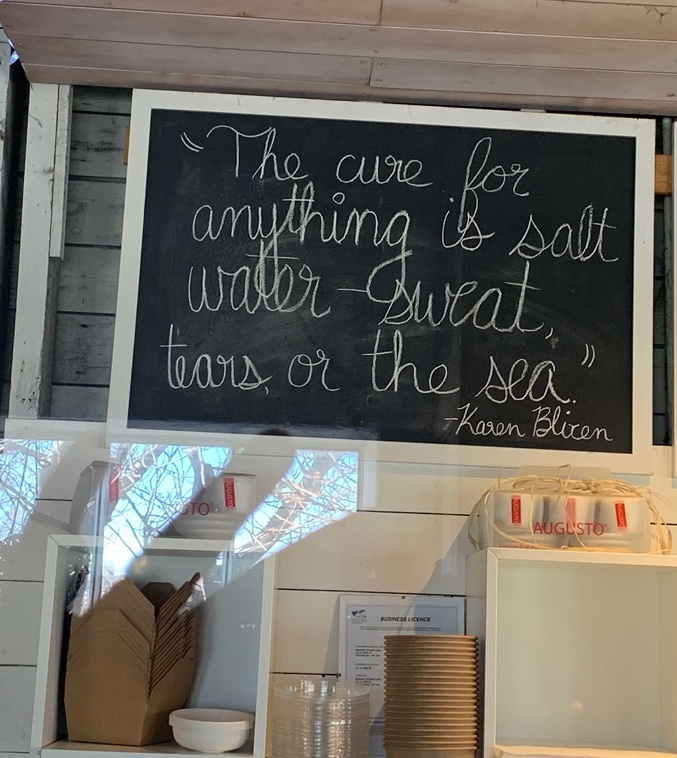 “The cure for
anything is salt
water - sweat,
tears, or the sea.”
-Karen Blixen
AUGUSTO
BUSINESS LICENCE